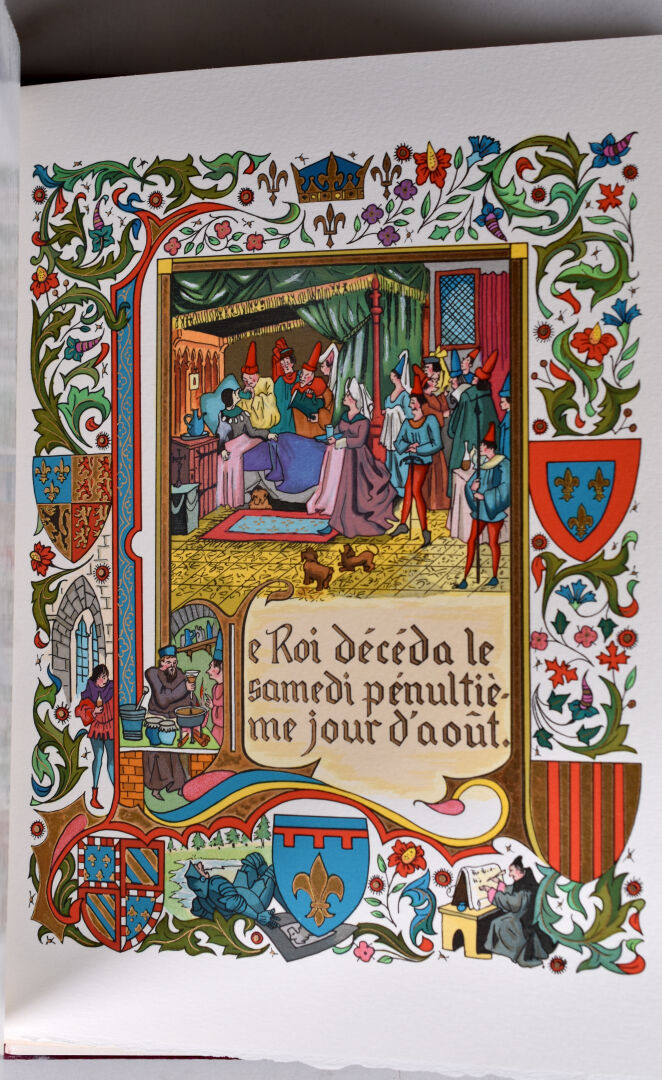 Le Roi décéda le
samedi pénultiè-
me jour d'août.